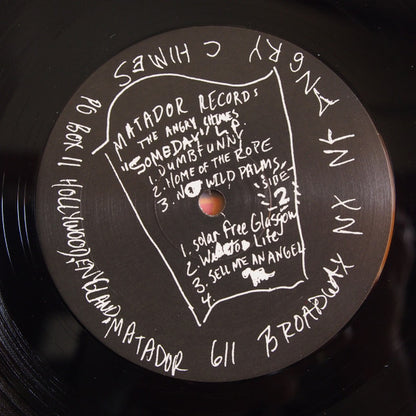 MATADOR RECORDS
THE ANGRY CHIMES
"SOMEDAY" L.P.
1. DUMBFUNNY
2. HOME OF THE ROPE
3. NOT WILD PALMS
SIDE
2
1. Solar Free Glasgow
2. Life
3. SELL ME AN ANGEL
4.
ANGRY CHIMES
PO BOX 11 HOLLYWOOD, ENGLAND
MATADOR 611 BROADWAY NX NY